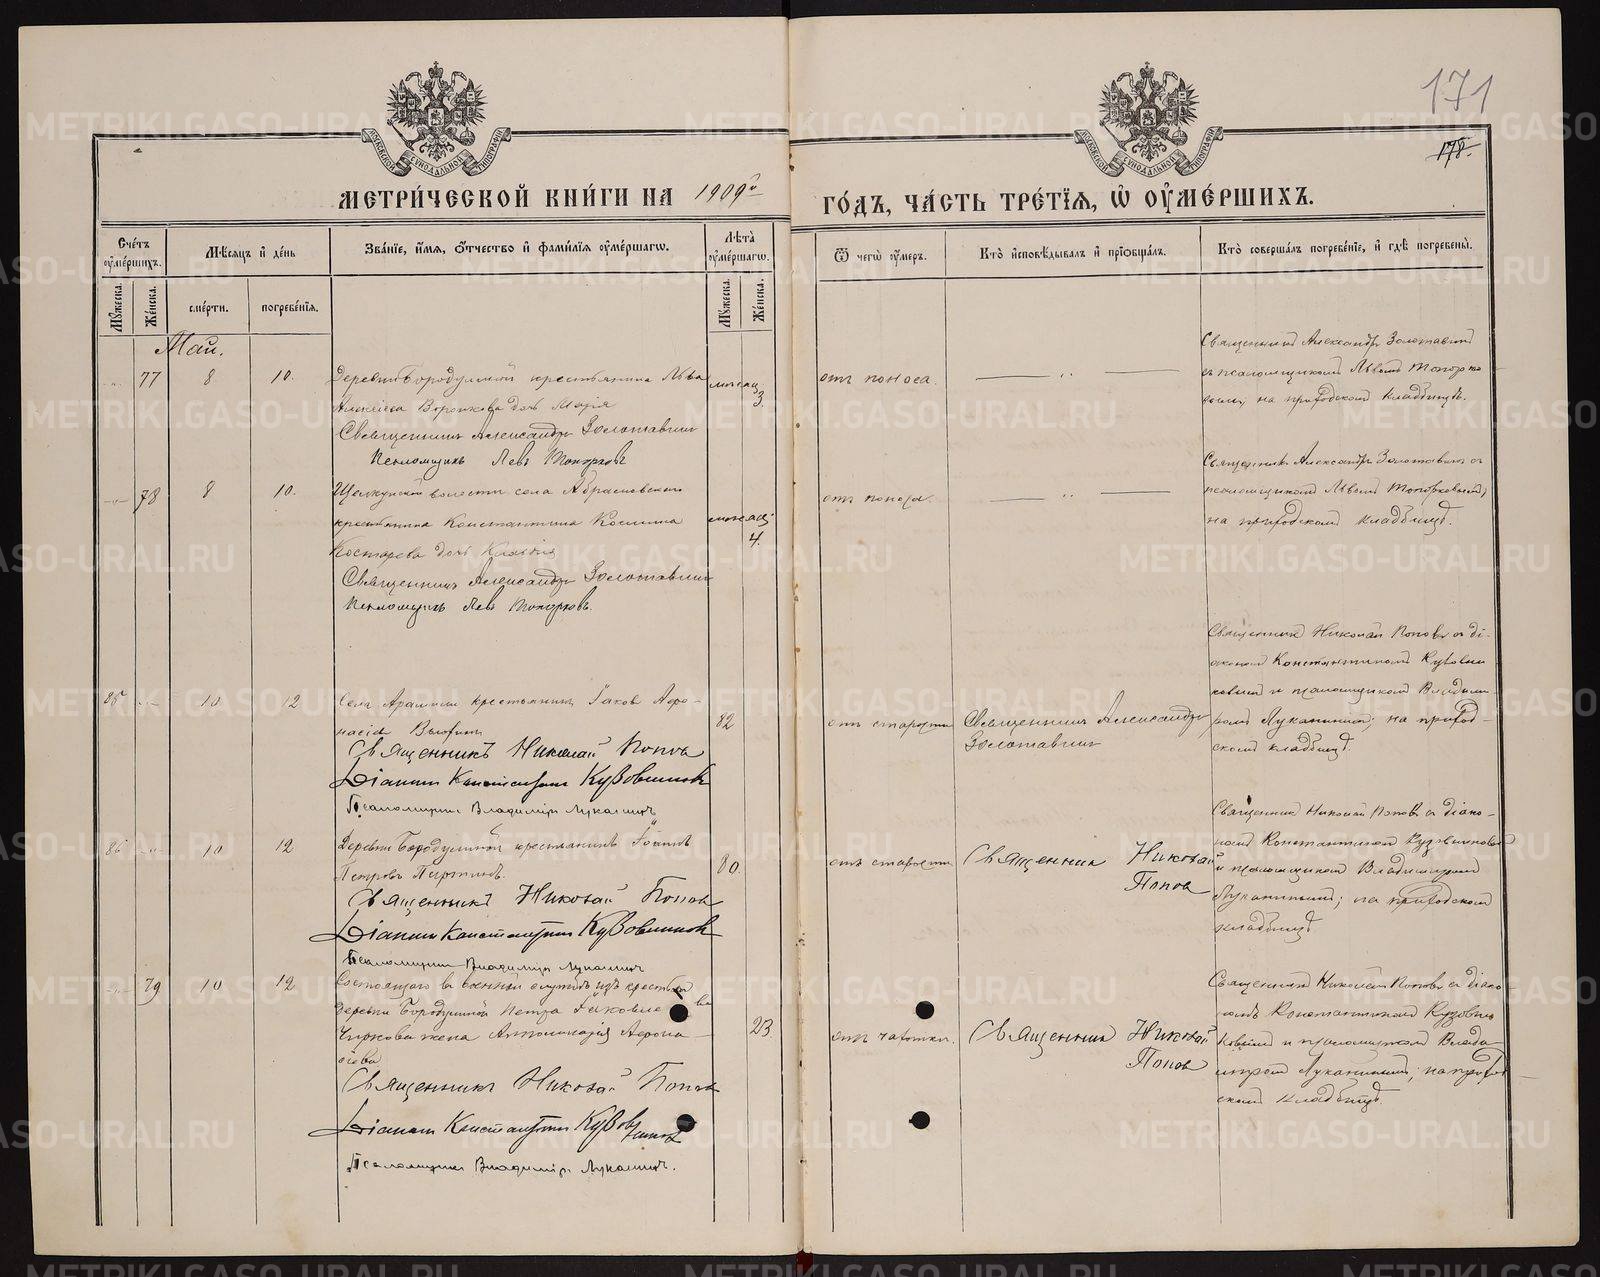 171
178.
МЕТРИ́ЧЕСКОЙ КНИ́ГИ НА 1909й
ГО́ДЪ, ЧА́СТЬ ТРЕ́ТІѦ, Ѡ҆ ОУ҆МЕ́РШИХЪ.
Сче́тъ оу҆ме́ршихъ.
Мѣ́сѧцъ и҆ де́нь
Зва́нїе, и҆́мѧ, ѻ҆́тчество и҆ фами́лїѧ оу҆ме́ршагѡ.
Лѣ́та оу҆ме́ршагѡ.
Ѿ чегѡ̀ оу҆́меръ.
Кто̀ и҆сповѣ́дывалъ и҆ прїѡбща́лъ.
Кто̀ соверша́лъ погребе́нїе, и҆ гдѣ̀ погребены̀.
Мꙋ́жеска.
Же́нска.
сме́рти.
погребе́нїѧ.
Мꙋ́жеска.
Же́нска.
Май.
77 8 10.
Деревни Бородулиной крестьянина Льва
Алексіева Воронкова дочь Марія
Священникъ Александръ Золотавинъ
Псаломщикъ Левъ Топорковъ
месяц.
3.
отъ поноса.
Священникъ Александръ Золотавинъ
съ псаломщикомъ Львомъ Топорко
вымъ, на приходскомъ кладбищѣ.
78 8 10.
волости села Абрамовскаго
крестьянина Константина Космина
Костарева дочь Клавдія
Священникъ Александръ Золотавинъ
Псаломщикъ Левъ Топорковъ.
месяц
4.
отъ поноса.
Священникъ Александръ Золотавинъ съ
псаломщикомъ Львомъ Топорковымъ,
на приходскомъ кладбищѣ.
85 10 12
Села Арамили крестьянинъ Іаковъ Аѳа-
насіевъ
Священникъ Николай Поповъ
Діаконъ Константинъ Кузовниковъ
Псаломщикъ Владиміръ Луканинъ
82
отъ старости
Священникъ Александръ
Золотавинъ
Священникъ Николай Поповъ съ ді-
акономъ Константиномъ Кузовни
ковымъ и псаломщикомъ Владими
ромъ Луканинымъ; на приход-
скомъ кладбищѣ.
86 10 12
Деревни Бородулиной крестьянинъ Іоаннъ
Петровъ
Священникъ Николай Поповъ
Діаконъ Константинъ Кузовниковъ
Псаломщикъ Владиміръ Луканинъ
80.
отъ старости
Священникъ Николай
Поповъ
Священникъ Николай Поповъ съ діако-
номъ Константиномъ Кузовниковымъ
и псаломщикомъ Владиміромъ
Луканинымъ; на приходскомъ
кладбищѣ
79 10 12
Состоящаго въ военной службѣ изъ крестьянъ
деревни Бородулиной Петра Іаковлева
Чиркова жена Аѳона-
сіева
Священникъ Николай Поповъ
Діаконъ Константинъ Кузовниковъ
Псаломщикъ Владиміръ Луканинъ.
23.
отъ чахотки.
Священникъ Николай
Поповъ
Священникъ Николай Поповъ съ діако
номъ Константиномъ Кузовни
ковымъ и псаломщикомъ Влади-
міромъ Луканинымъ; на приход
скомъ кладбищѣ.